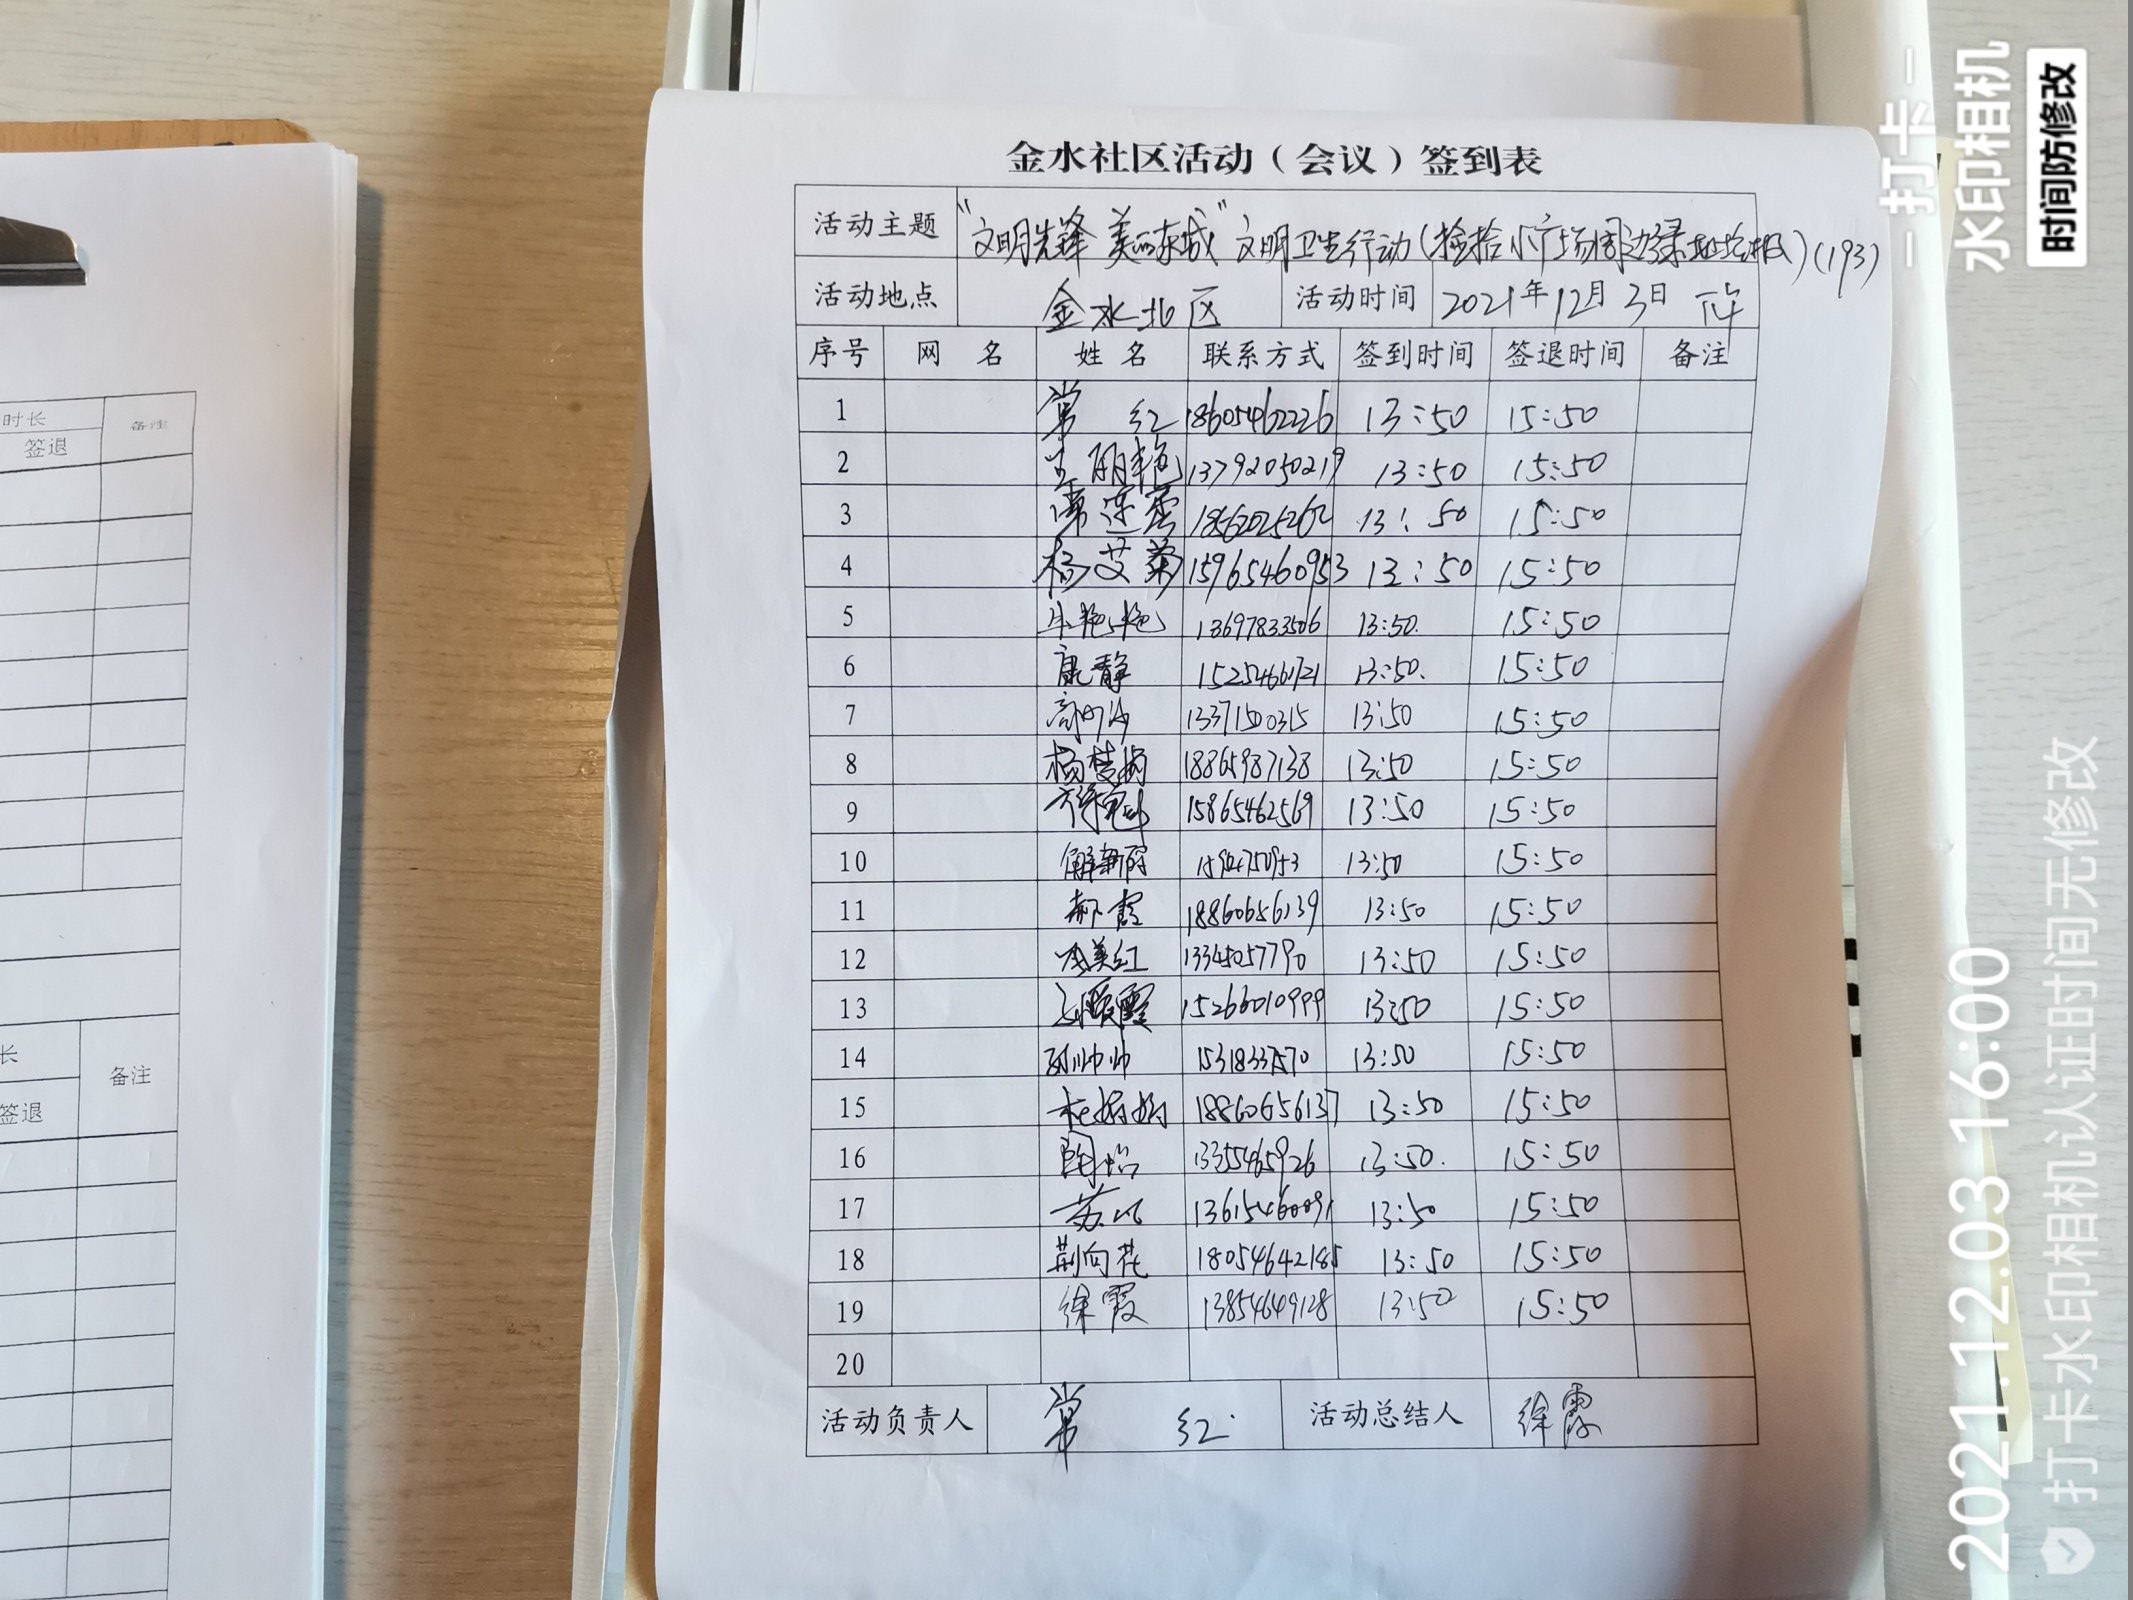 金水社区活动（会议）签到表
活动主题 “文明先锋 美丽东城” 文明卫生行动（捡拾小广场周边绿地垃圾）(193)
活动地点 金水北区 活动时间 2021年12月3日 下午
序号 网 名 姓 名 联系方式 签到时间 签退时间 备注
1 常 红 18605462226 13:50 15:50
2 13792050219 13:50 15:50
3 13:50 15:50
4 杨艾菊 15965460953 13:50 15:50
5 牛艳艳 13697833506 13:50. 15:50
6 康静 15254661721 13:50. 15:50
7 13371500315 13:50 15:50
8 杨桂娟 18865987138 13:50 15:50
9 15865462569 13:50 15:50
10 13:50 15:50
11 郝霞 18860656139 13:50 15:50
12 13345057790 13:50 15:50
13 15266010999 13:50 15:50
14 孙帅帅 13:50 15:50
15 杜娟娟 18860656137 13:50 15:50
16 陶怡 13355465926 13:50. 15:50
17 13615460091 13:50 15:50
18 荆向花 18054642185 13:50 15:50
19 徐霞 13854649128 13:50 15:50
20
活动负责人 常 红 活动总结人 徐霞
时长 备注
签退
长 备注
签退
打卡
水印相机
时间防修改
2021.12.03 16:00
打卡水印相机认证时间无修改